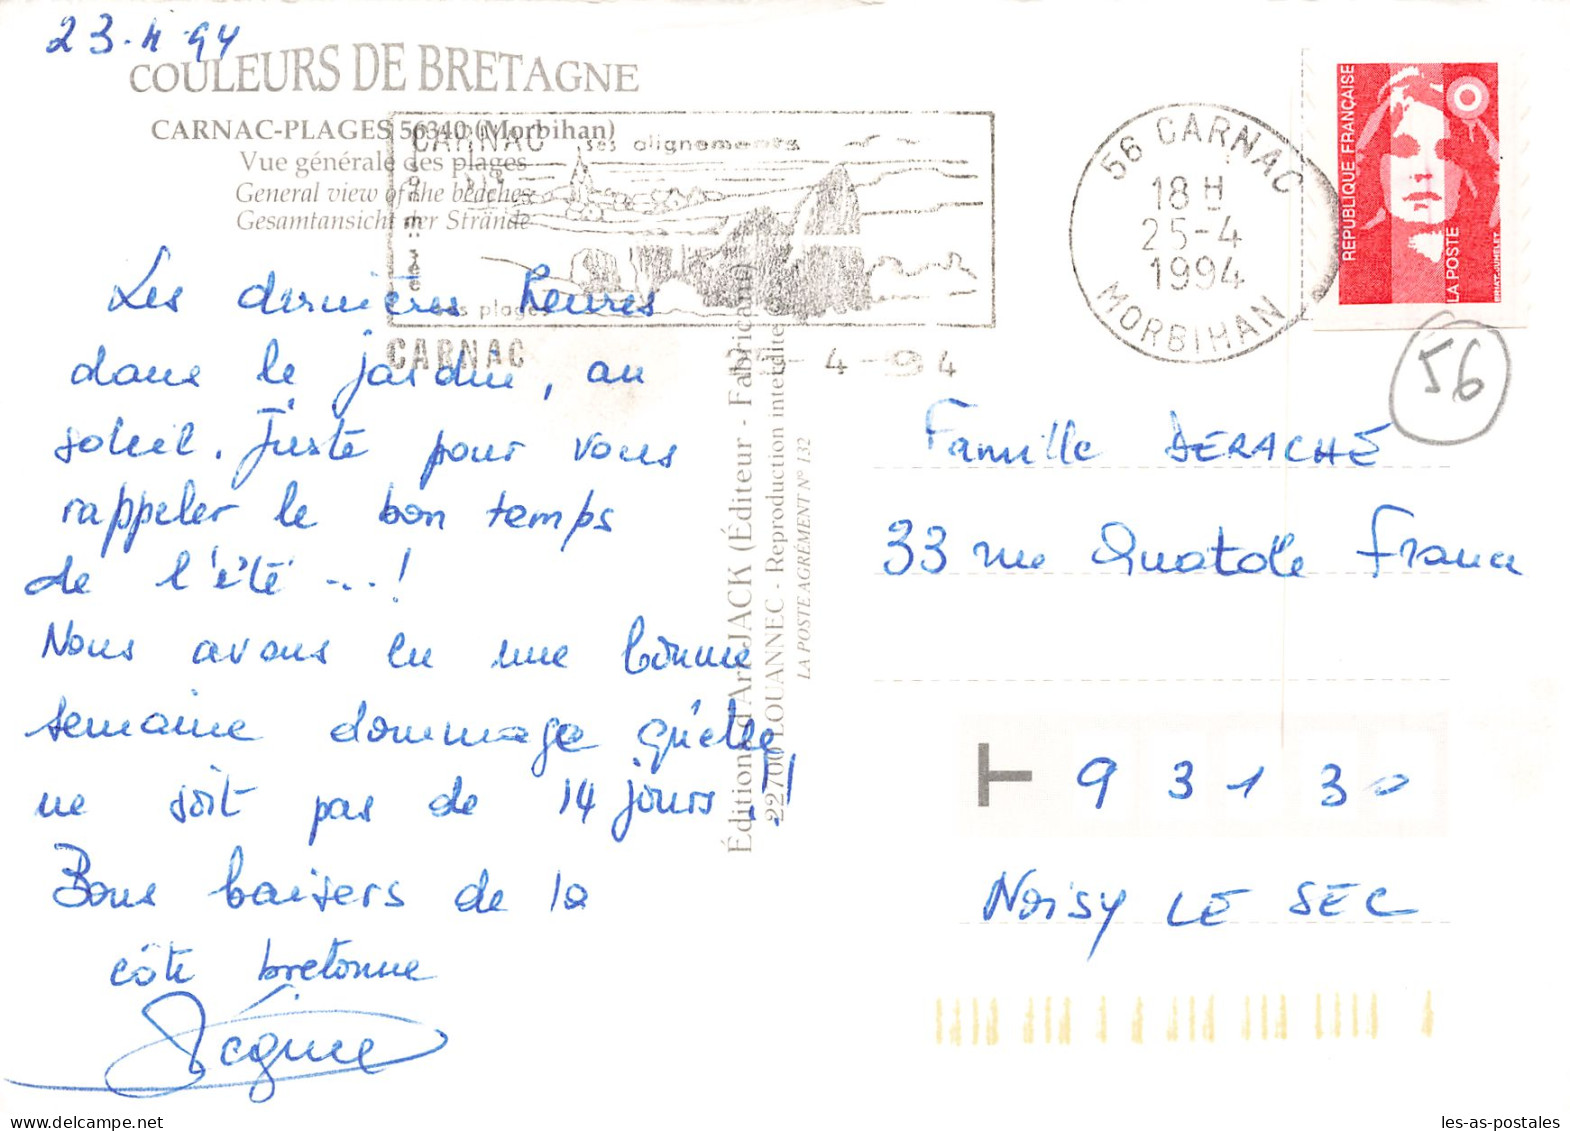 23.4.94
COULEURS DE BRETAGNE
CARNAC-PLAGES 56340 (Morbihan)
Vue générale des plages
General view of the beaches
Gesamtansicht der Strände
CARNAC ses alignements
son musée
ses plages
CARNAC
4-94
56 CARNAC
18 H
25-4
1994
MORBIHAN
RÉPUBLIQUE FRANÇAISE
LA POSTE
56
Les dernières heures
dans le jardin, au
soleil. Juste pour vous
rappeler le bon temps
de l'été...!
Nous avons eu une bonne
semaine dommage qu'elle
ne soit pas de 14 jours!!
Bons baisers de la
côte bretonne
Régine
Éditions d'Art JACK (Éditeur - Fabricant)
22700 LOUANNEC - Reproduction interdite
LA POSTE AGRÉMENT N° 132
Famille DERACHE
33 rue Anatole France
93130
NOISY LE SEC
les-as-postales